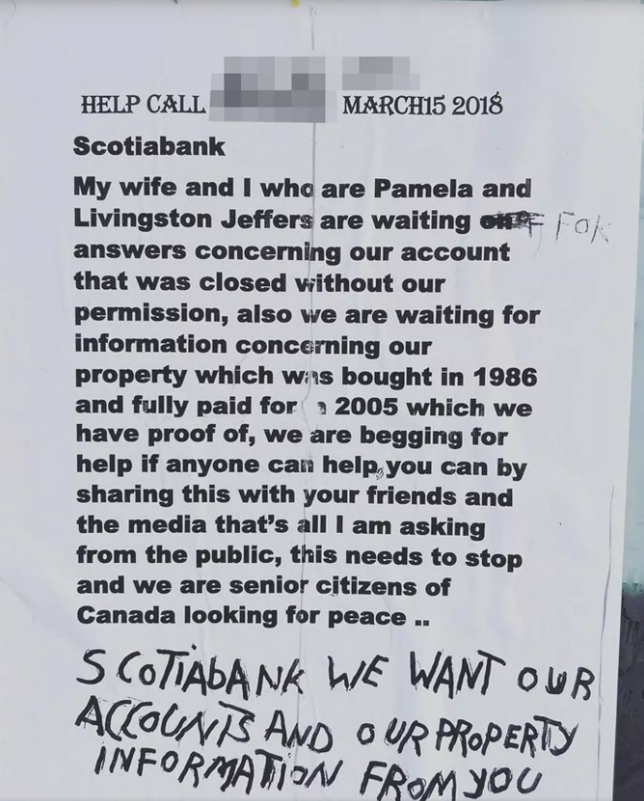 HELP CALL MARCH15 2018
Scotiabank
My wife and I who are Pamela and
Livingston Jeffers are waiting FOR
answers concerning our account
that was closed without our
permission, also we are waiting for
information concerning our
property which was bought in 1986
and fully paid for 2005 which we
have proof of, we are begging for
help if anyone can help, you can by
sharing this with your friends and
the media that's all I am asking
from the public, this needs to stop
and we are senior citizens of
Canada looking for peace ..
SCOTIABANK WE WANT OUR
ACCOUNTS AND OUR PROPERTY
INFORMATION FROM YOU